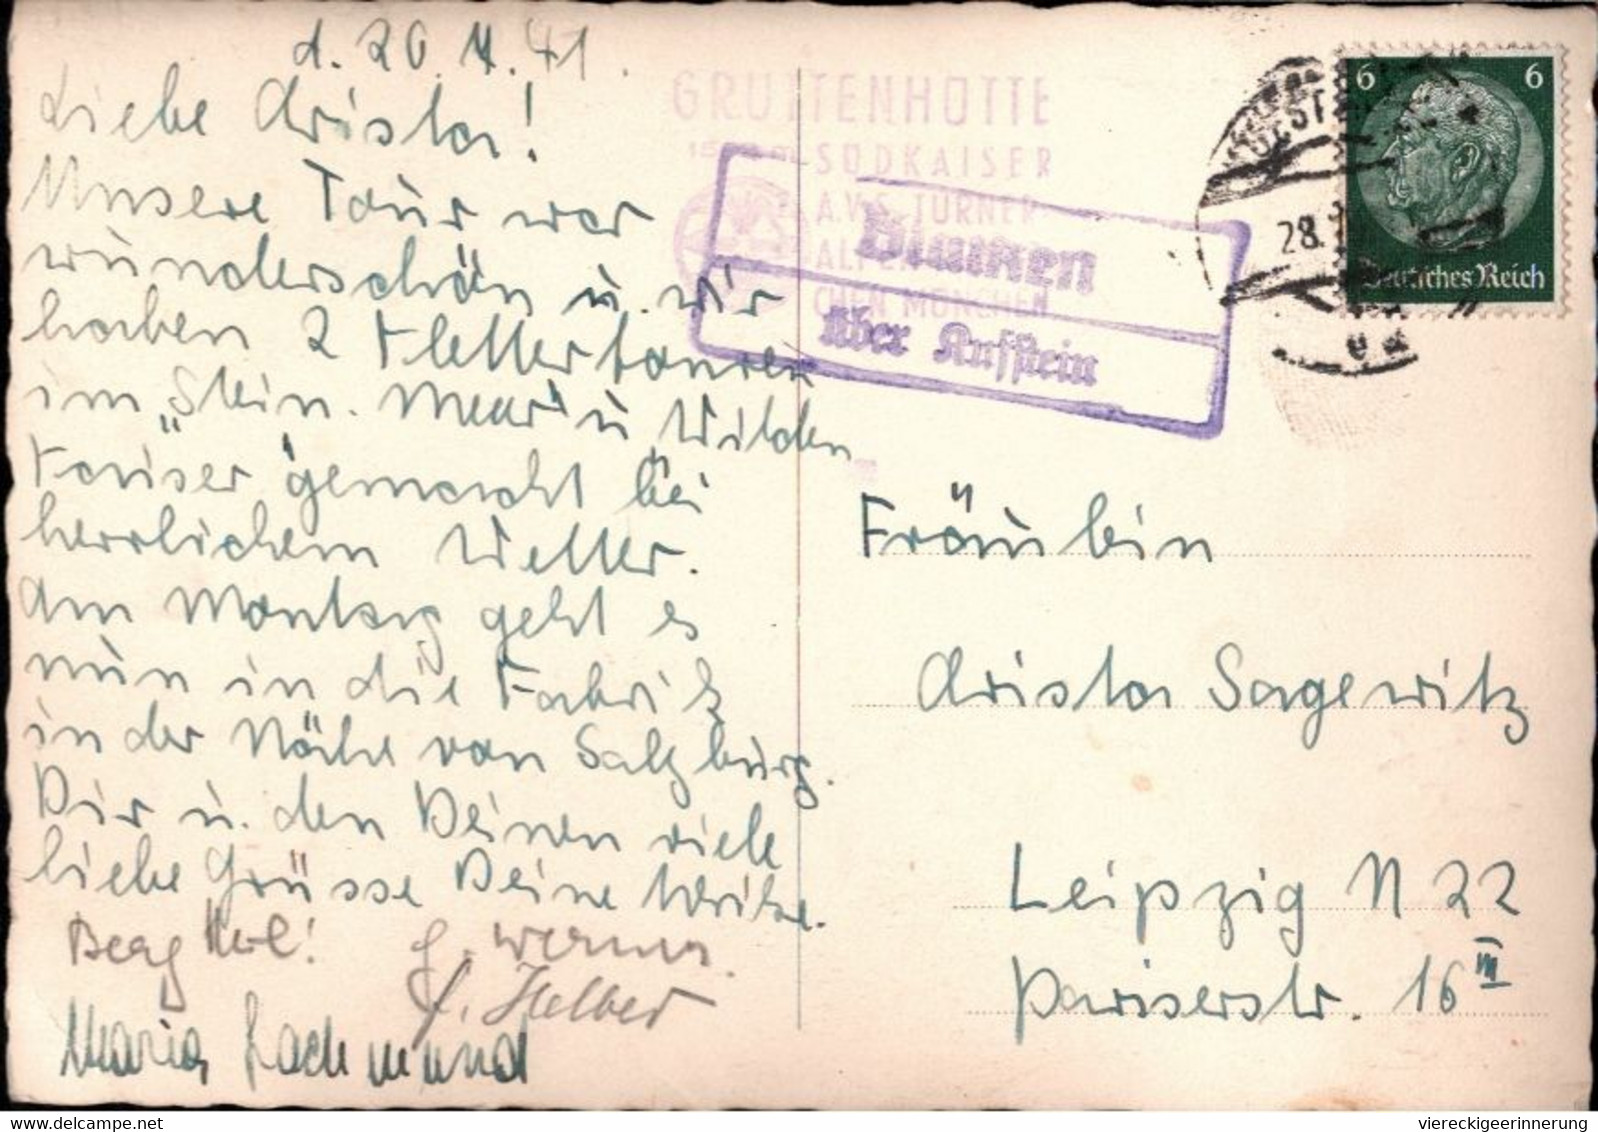 d. 20. 4. 41.
Liebe Christa!
Unsere Tour war
wunderschön u. wir
haben 2 Klettertouren
im "Stein. Meer" u. Wilden
Kaiser gemacht bei
herrlichem Wetter.
Am Montag geht es
nun in die Fabrik
in der Nähe von Salzburg.
Dir u. den Deinen viele
liebe Grüsse Deine
Berg Heil! Werner.
Maria Lachmund
GRUTTENHÜTTE
SÜDKAISER
A.V.S. TURNER
ALPEN
CHEN MÜNCHEN
über Kufstein
28.
6 6
Deutsches Reich
Fräulein
Christa Sagewitz
Leipzig N 22
Pariserstr. 16 III
viereckigeerinnerung